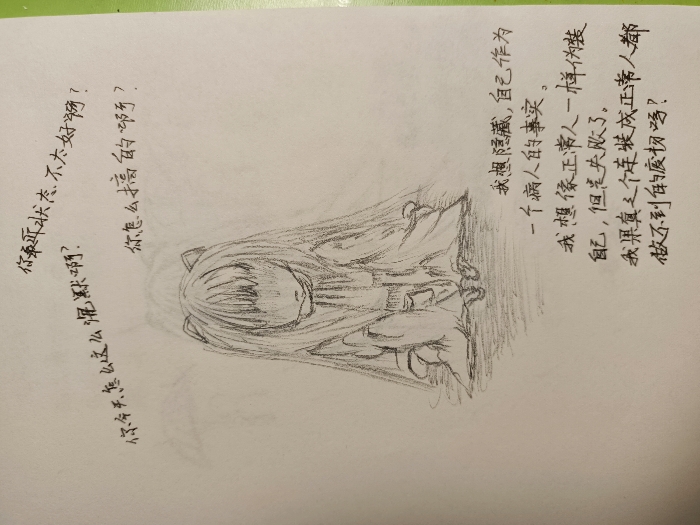 你最近状态不太好哟?
你今天怎么这么沉默啊?
你怎么搞的啊?
我想隐藏,自己作为
一个病人的事实。
我想像正常人一样伪装
自己,但是失败了。
我果真是个连装成正常人都
做不到的废物吗?